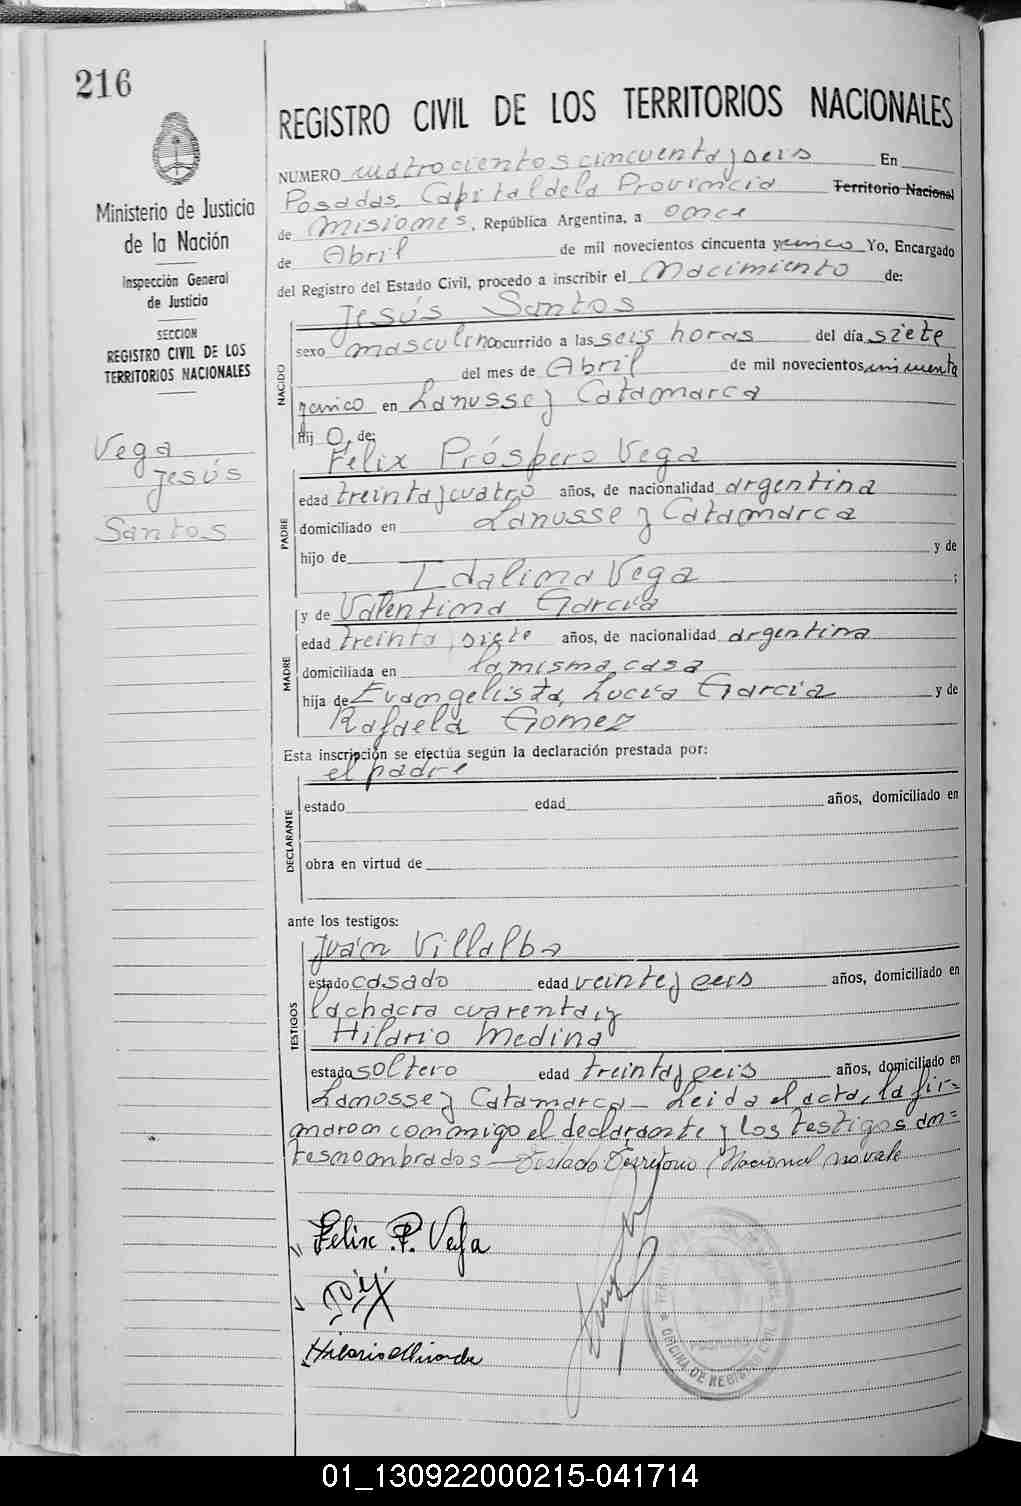 216
Ministerio de Justicia
de la Nación
Inspección General
de Justicia
SECCION
REGISTRO CIVIL DE LOS
TERRITORIOS NACIONALES
Vega
Jesús
Santos
REGISTRO CIVIL DE LOS TERRITORIOS NACIONALES
NUMERO cuatrocientos cincuenta y seis En
Posadas, Capital de la Provincia Territorio Nacional
de Misiones, República Argentina, a once
de Abril de mil novecientos cincuenta y cinco Yo, Encargado
del Registro del Estado Civil, procedo a inscribir el Nacimiento de:
Jesús Santos
NACIDO
sexo masculino ocurrido a las seis horas del día siete
del mes de Abril de mil novecientos cincuenta
y cinco en Lanusse y Catamarca
hij o, de:
Felix Próspero Vega
PADRE
edad treinta y cuatro años, de nacionalidad argentina
domiciliado en Lanusse y Catamarca
hijo de y de
Idalina Vega ;
y de Valentina García
MADRE
edad treinta y siete años, de nacionalidad argentina
domiciliada en la misma casa
hija de Evangelista Lucía García y de
Rafaela Gomez
Esta inscripción se efectúa según la declaración prestada por:
el padre
DECLARANTE
estado edad años, domiciliado en
obra en virtud de
ante los testigos:
Juan Villalba
TESTIGOS
estado casado edad veinte y seis años, domiciliado en
la chacra cuarenta, y
Hilario Medina
estado soltero edad treinta y seis años, domiciliado en
Lanusse y Catamarca - Leida el acta, la fir-
maron conmigo el declarante y los testigos an=
tesnombrados - Testado Territorio Nacional no vale
Felix P. Vega
Hilario
OFICINA DE REGISTRO CIVIL
POSADAS
01_130922000215-041714